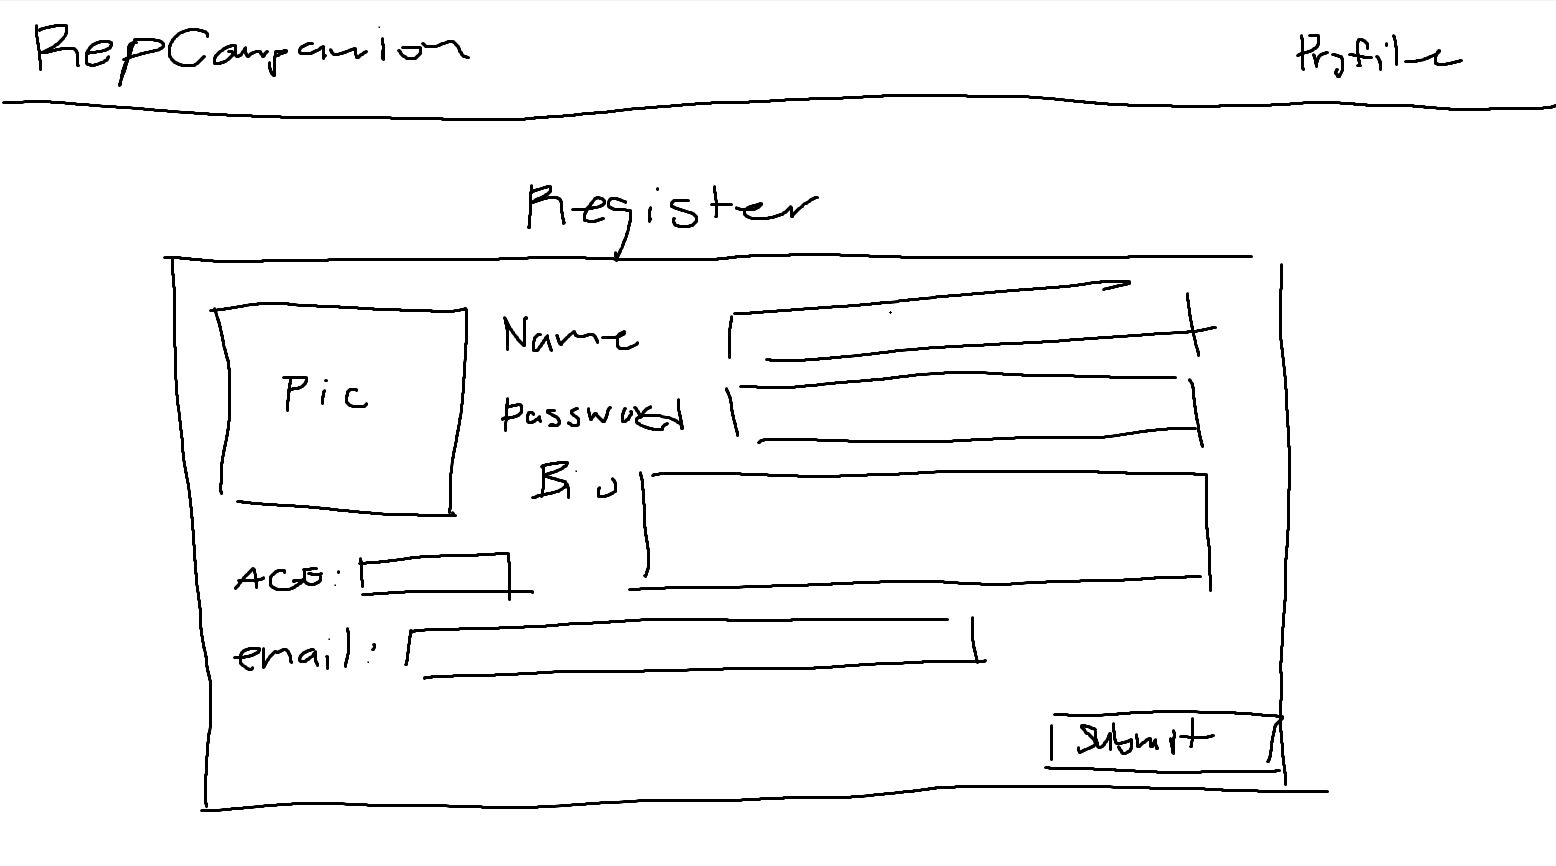 RepCompanion
Profile
Register
Pic
Name
Password
Bio
AGE:
email:
Submit